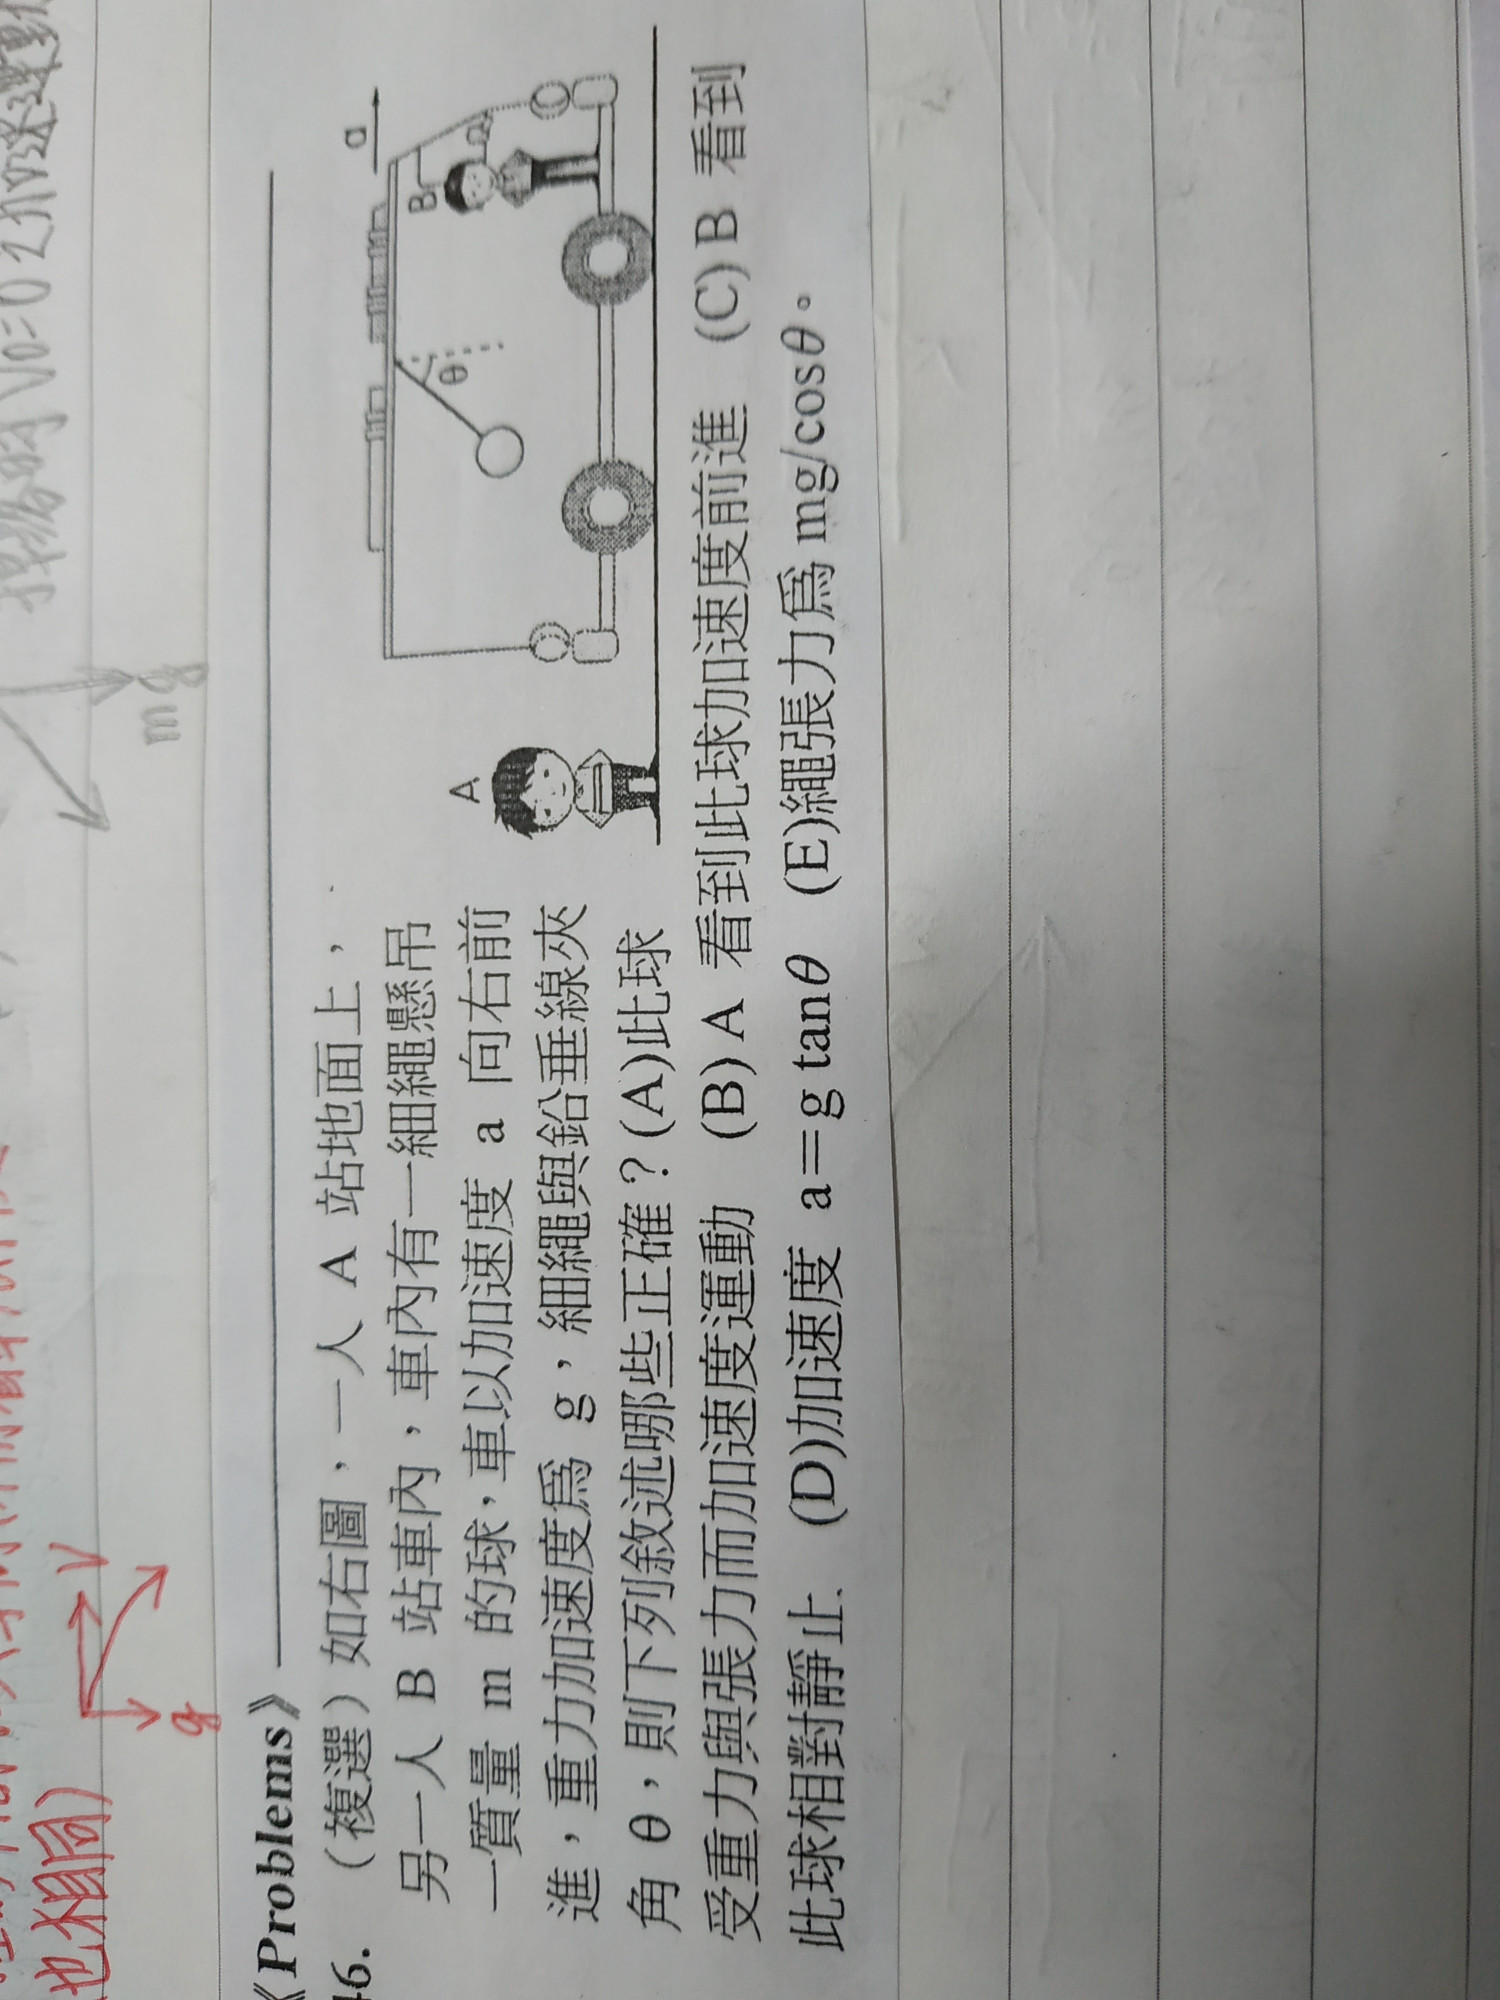 《Problems》
46. （複選）如右圖，一人 A 站地面上，
另一人 B 站車內，車內有一細繩懸吊
一質量 m 的球，車以加速度 a 向右前
進，重力加速度爲 g，細繩與鉛垂線夾
角 θ，則下列敘述哪些正確？(A)此球
受重力與張力而加速度運動 (B) A 看到此球加速度前進 (C) B 看到
此球相對靜止 (D)加速度 a＝g tanθ (E)繩張力爲 mg/cosθ。
A
B
a
θ
mg
g
V
也相同)